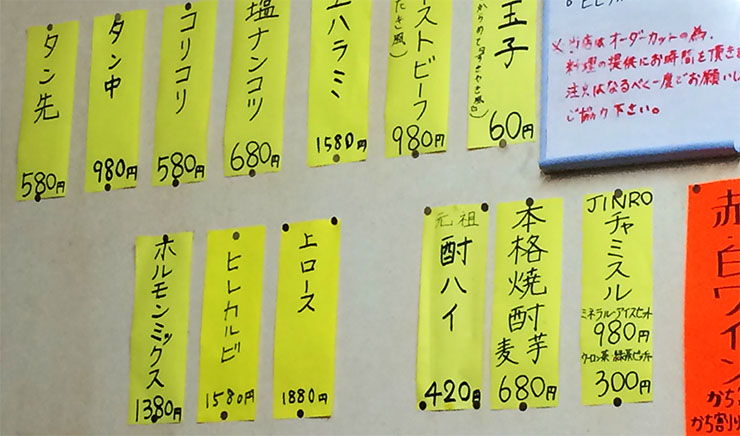 タン先
580円
タン中
980円
コリコリ
580円
塩ナンコツ
680円
上ハラミ
1580円
ーストビーフ
たたき風)
980円
玉子
60円
※当店はオーダーカットの為、
料理の提供にお時間を頂きま
注文はなるべく一度でお願いし
ご協力下さい。
ホルモンミックス
1380円
ヒレカルビ
1580円
上ロース
1880円
元祖
酎ハイ
420円
本格焼酎
麦 芋
680円
JINRO
チャミスル
ミネラル・アイスセット
980円
ウーロン茶 緑茶ピッチャー
300円
赤・白ワイン
かち
かち割り